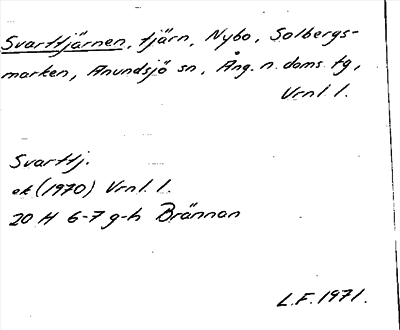 Svarttjärnen, tjärn, Nybo, Solbergs-
marken, Anundsjö sn, Ång. n. doms. tg,
Vrnl. l.
Svarttj.
ek (1970) Vrnl. l.
20 H 6-7 g-h Brännan
L.F. 1971.